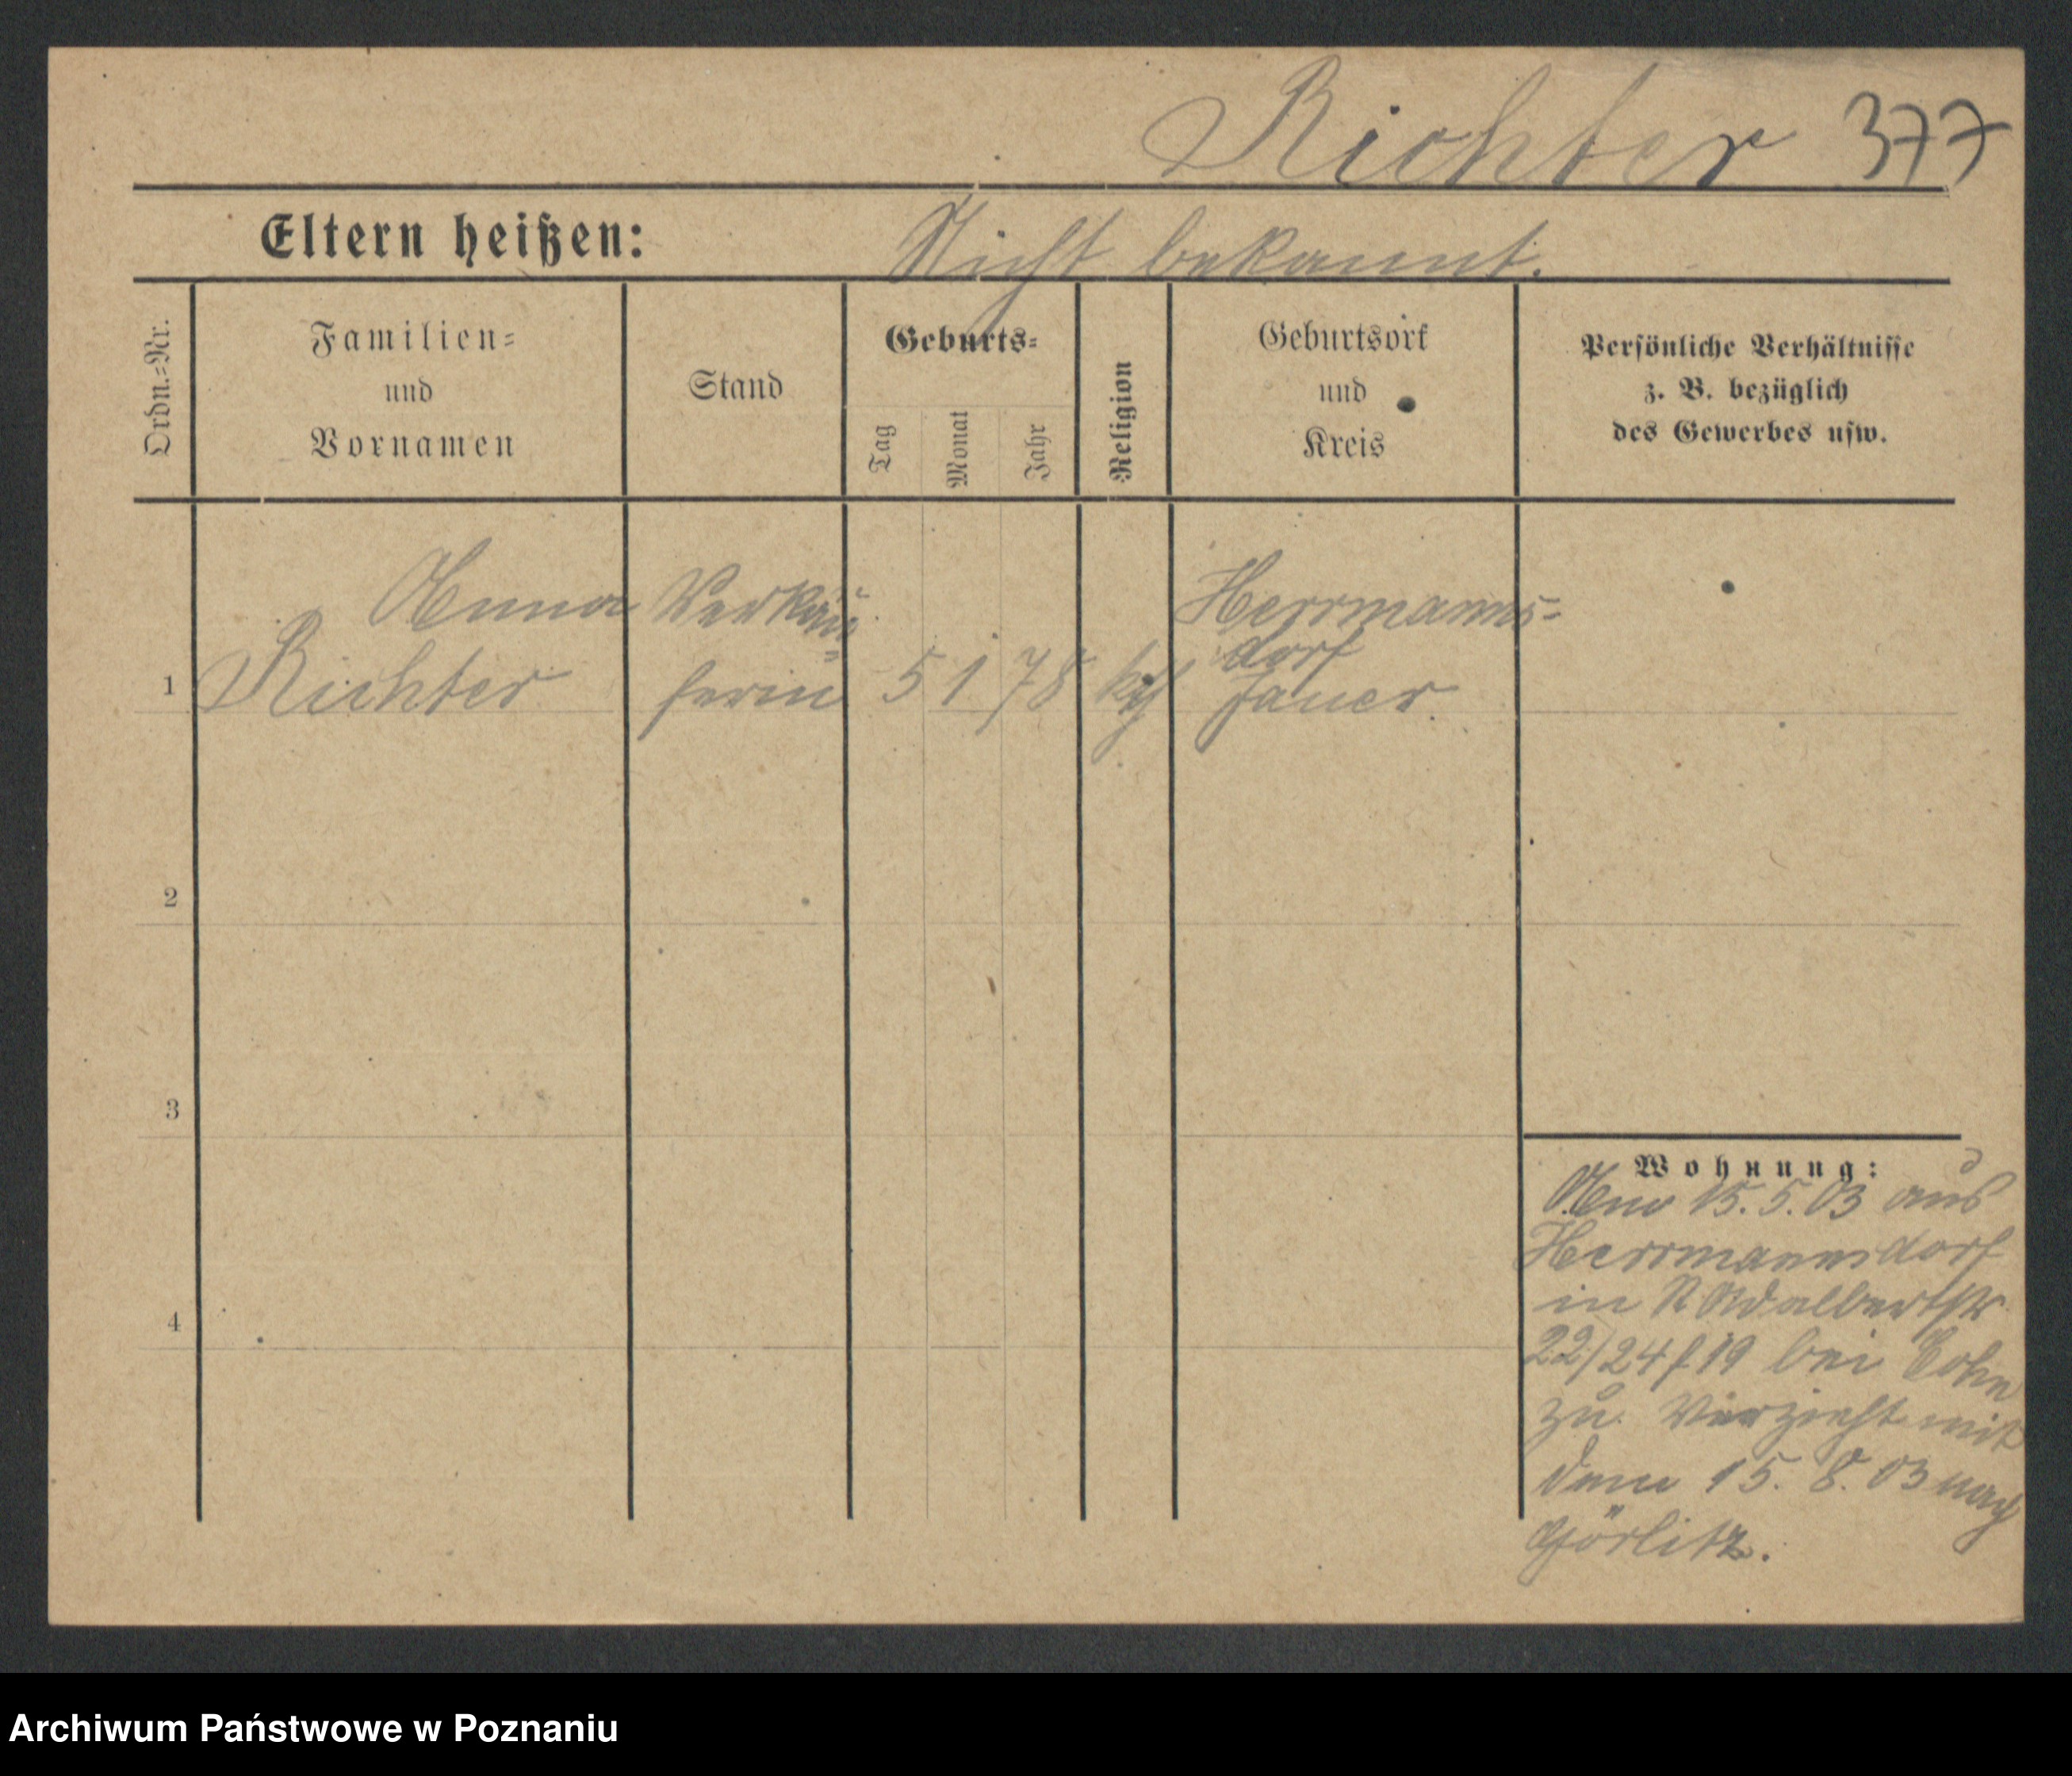 Richter 377
Eltern heißen: Nicht bekannt.
Ordn.=Nr.
Familien=
und
Vornamen
Stand
Geburts=
Tag
Monat
Jahr
Religion
Geburtsort
und
Kreis
Persönliche Verhältnisse
z. B. bezüglich
des Gewerbes usw.
Anna
1 Richter
Verkäu=
ferin
5 1 78
kth
Herrmanns=
dorf
Jauer.
2
3
4
Wohnung:
15.5.03 aus
Herrmannsdorf
in Adalbertstr
22/24 19 bei Cohn
zu. Verzieht mit
dem 15. 8. 03 nach
Görlitz.
Archiwum Państwowe w Poznaniu